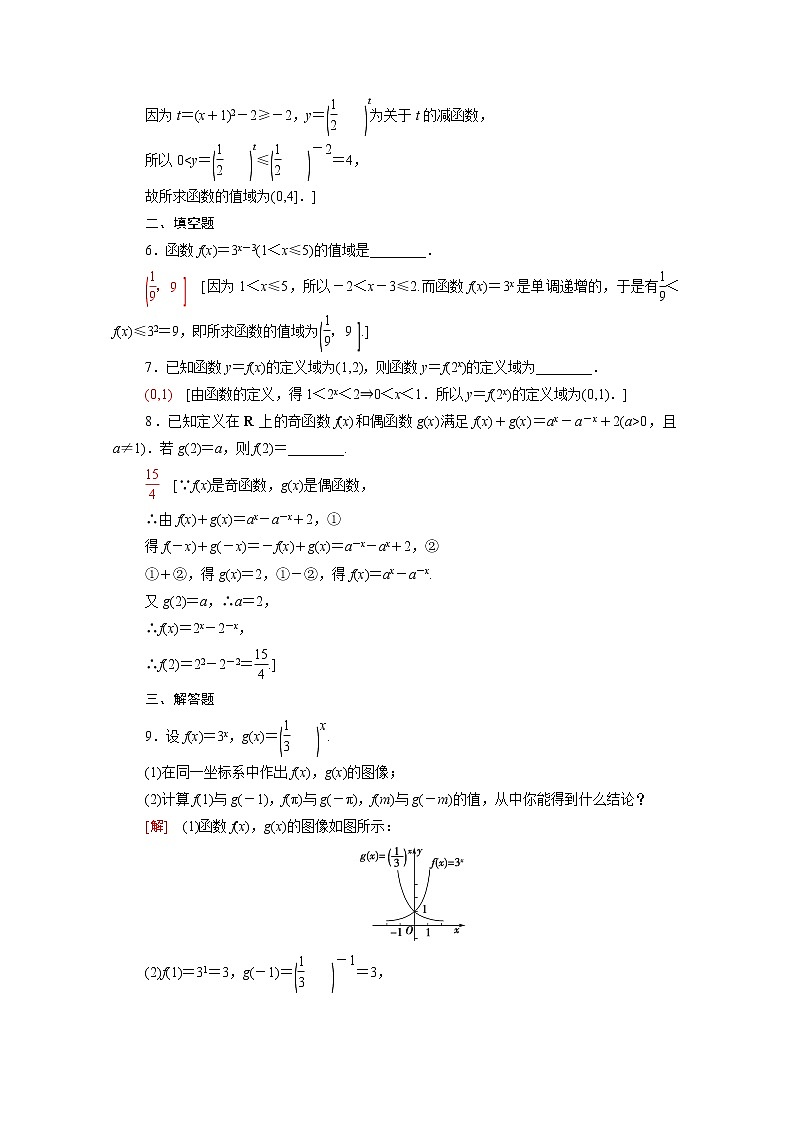 因为 t＝(x＋1)²－2≥－2，y＝(1/2)ᵗ为关于 t 的减函数，
所以 0<y＝(1/2)ᵗ≤(1/2)⁻²＝4，
故所求函数的值域为(0,4]．]
二、填空题
6．函数 f(x)＝3ˣ⁻³(1＜x≤5)的值域是________．
(1/9，9]　[因为 1＜x≤5，所以－2＜x－3≤2.而函数 f(x)＝3ˣ 是单调递增的，于是有1/9＜
f(x)≤3²＝9，即所求函数的值域为(1/9，9].]
7．已知函数 y＝f(x)的定义域为(1,2)，则函数 y＝f(2ˣ)的定义域为________．
(0,1)　[由函数的定义，得 1＜2ˣ＜2⇒0＜x＜1．所以 y＝f(2ˣ)的定义域为(0,1)．]
8．已知定义在 R 上的奇函数 f(x)和偶函数 g(x)满足 f(x)＋g(x)＝aˣ－a⁻ˣ＋2(a>0，且
a≠1)．若 g(2)＝a，则 f(2)＝________.
15/4　[∵f(x)是奇函数，g(x)是偶函数，
∴由 f(x)＋g(x)＝aˣ－a⁻ˣ＋2，①
得 f(－x)＋g(－x)＝－f(x)＋g(x)＝a⁻ˣ－aˣ＋2，②
①＋②，得 g(x)＝2，①－②，得 f(x)＝aˣ－a⁻ˣ.
又 g(2)＝a，∴a＝2，
∴f(x)＝2ˣ－2⁻ˣ，
∴f(2)＝2²－2⁻²＝15/4.]
三、解答题
9．设 f(x)＝3ˣ，g(x)＝(1/3)ˣ.
(1)在同一坐标系中作出 f(x)，g(x)的图像；
(2)计算 f(1)与 g(－1)，f(π)与 g(－π)，f(m)与 g(－m)的值，从中你能得到什么结论？
[解]　(1)函数 f(x)，g(x)的图像如图所示：
g(x)=(1/3)ˣ y f(x)=3ˣ
1
−1 O 1 x
(2)f(1)＝3¹＝3，g(－1)＝(1/3)⁻¹＝3，